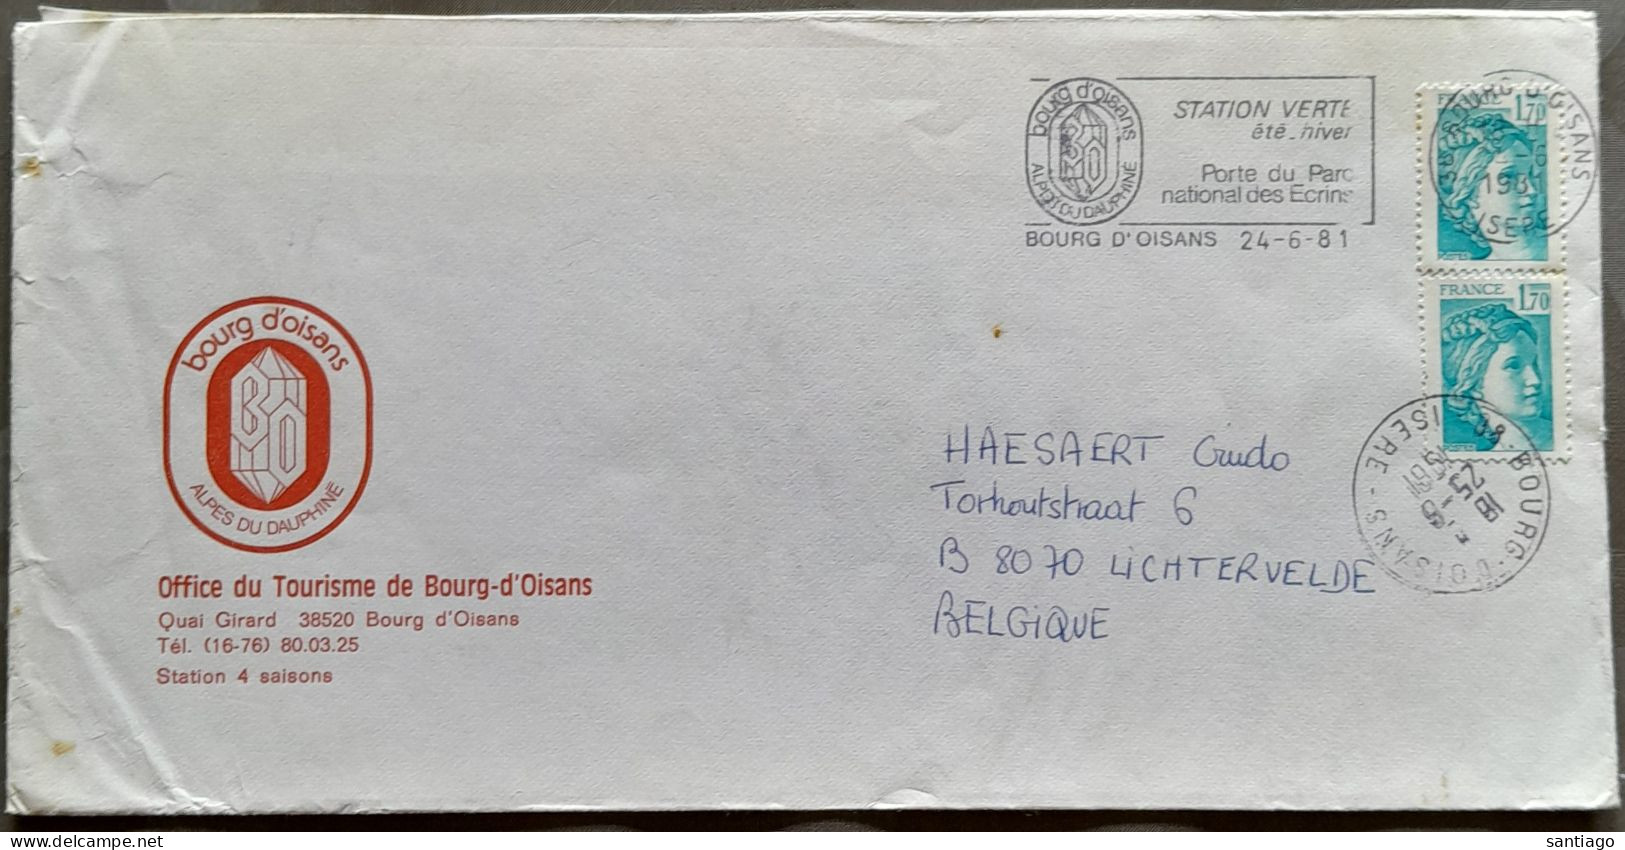 bourg d'oisans
BO
ALPES DU DAUPHINÉ
STATION VERTE
été-hiver
Porte du Parc
national des Ecrins
BOURG D'OISANS 24-6-81
38 BOURG D'OISANS
-6
1981
ISERE
FRANCE 1,70
POSTES
FRANCE 1,70
38 - BOURG-D'OISANS -
ISERE
bourg d'oisans
BO
ALPES DU DAUPHINÉ
Office du Tourisme de Bourg-d'Oisans
Quai Girard 38520 Bourg d'Oisans
Tél. (16-76) 80.03.25
Station 4 saisons
HAESAERT Guido
Torhoutstraat 6
B 8070 LICHTERVELDE
BELGIQUE
santiago